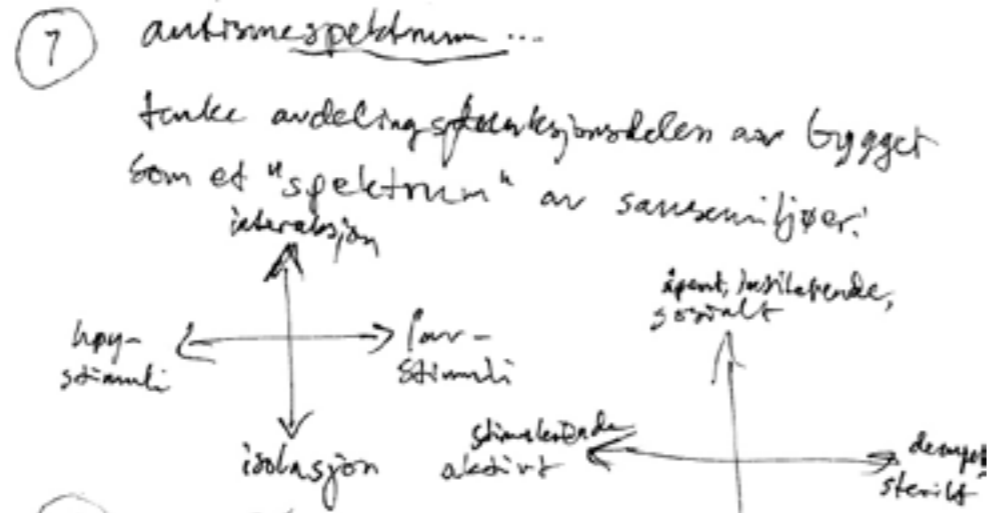 7 autismespektrum ...
tenke avdelingsfunksjonsdelen av bygget
som et "spektrum" av sansemiljøer:
interaksjon
høy-
stimuli
lav-
stimuli
isolasjon
åpent, inviterende,
sosialt
stimulerende
aktivt
dempet,
sterilt